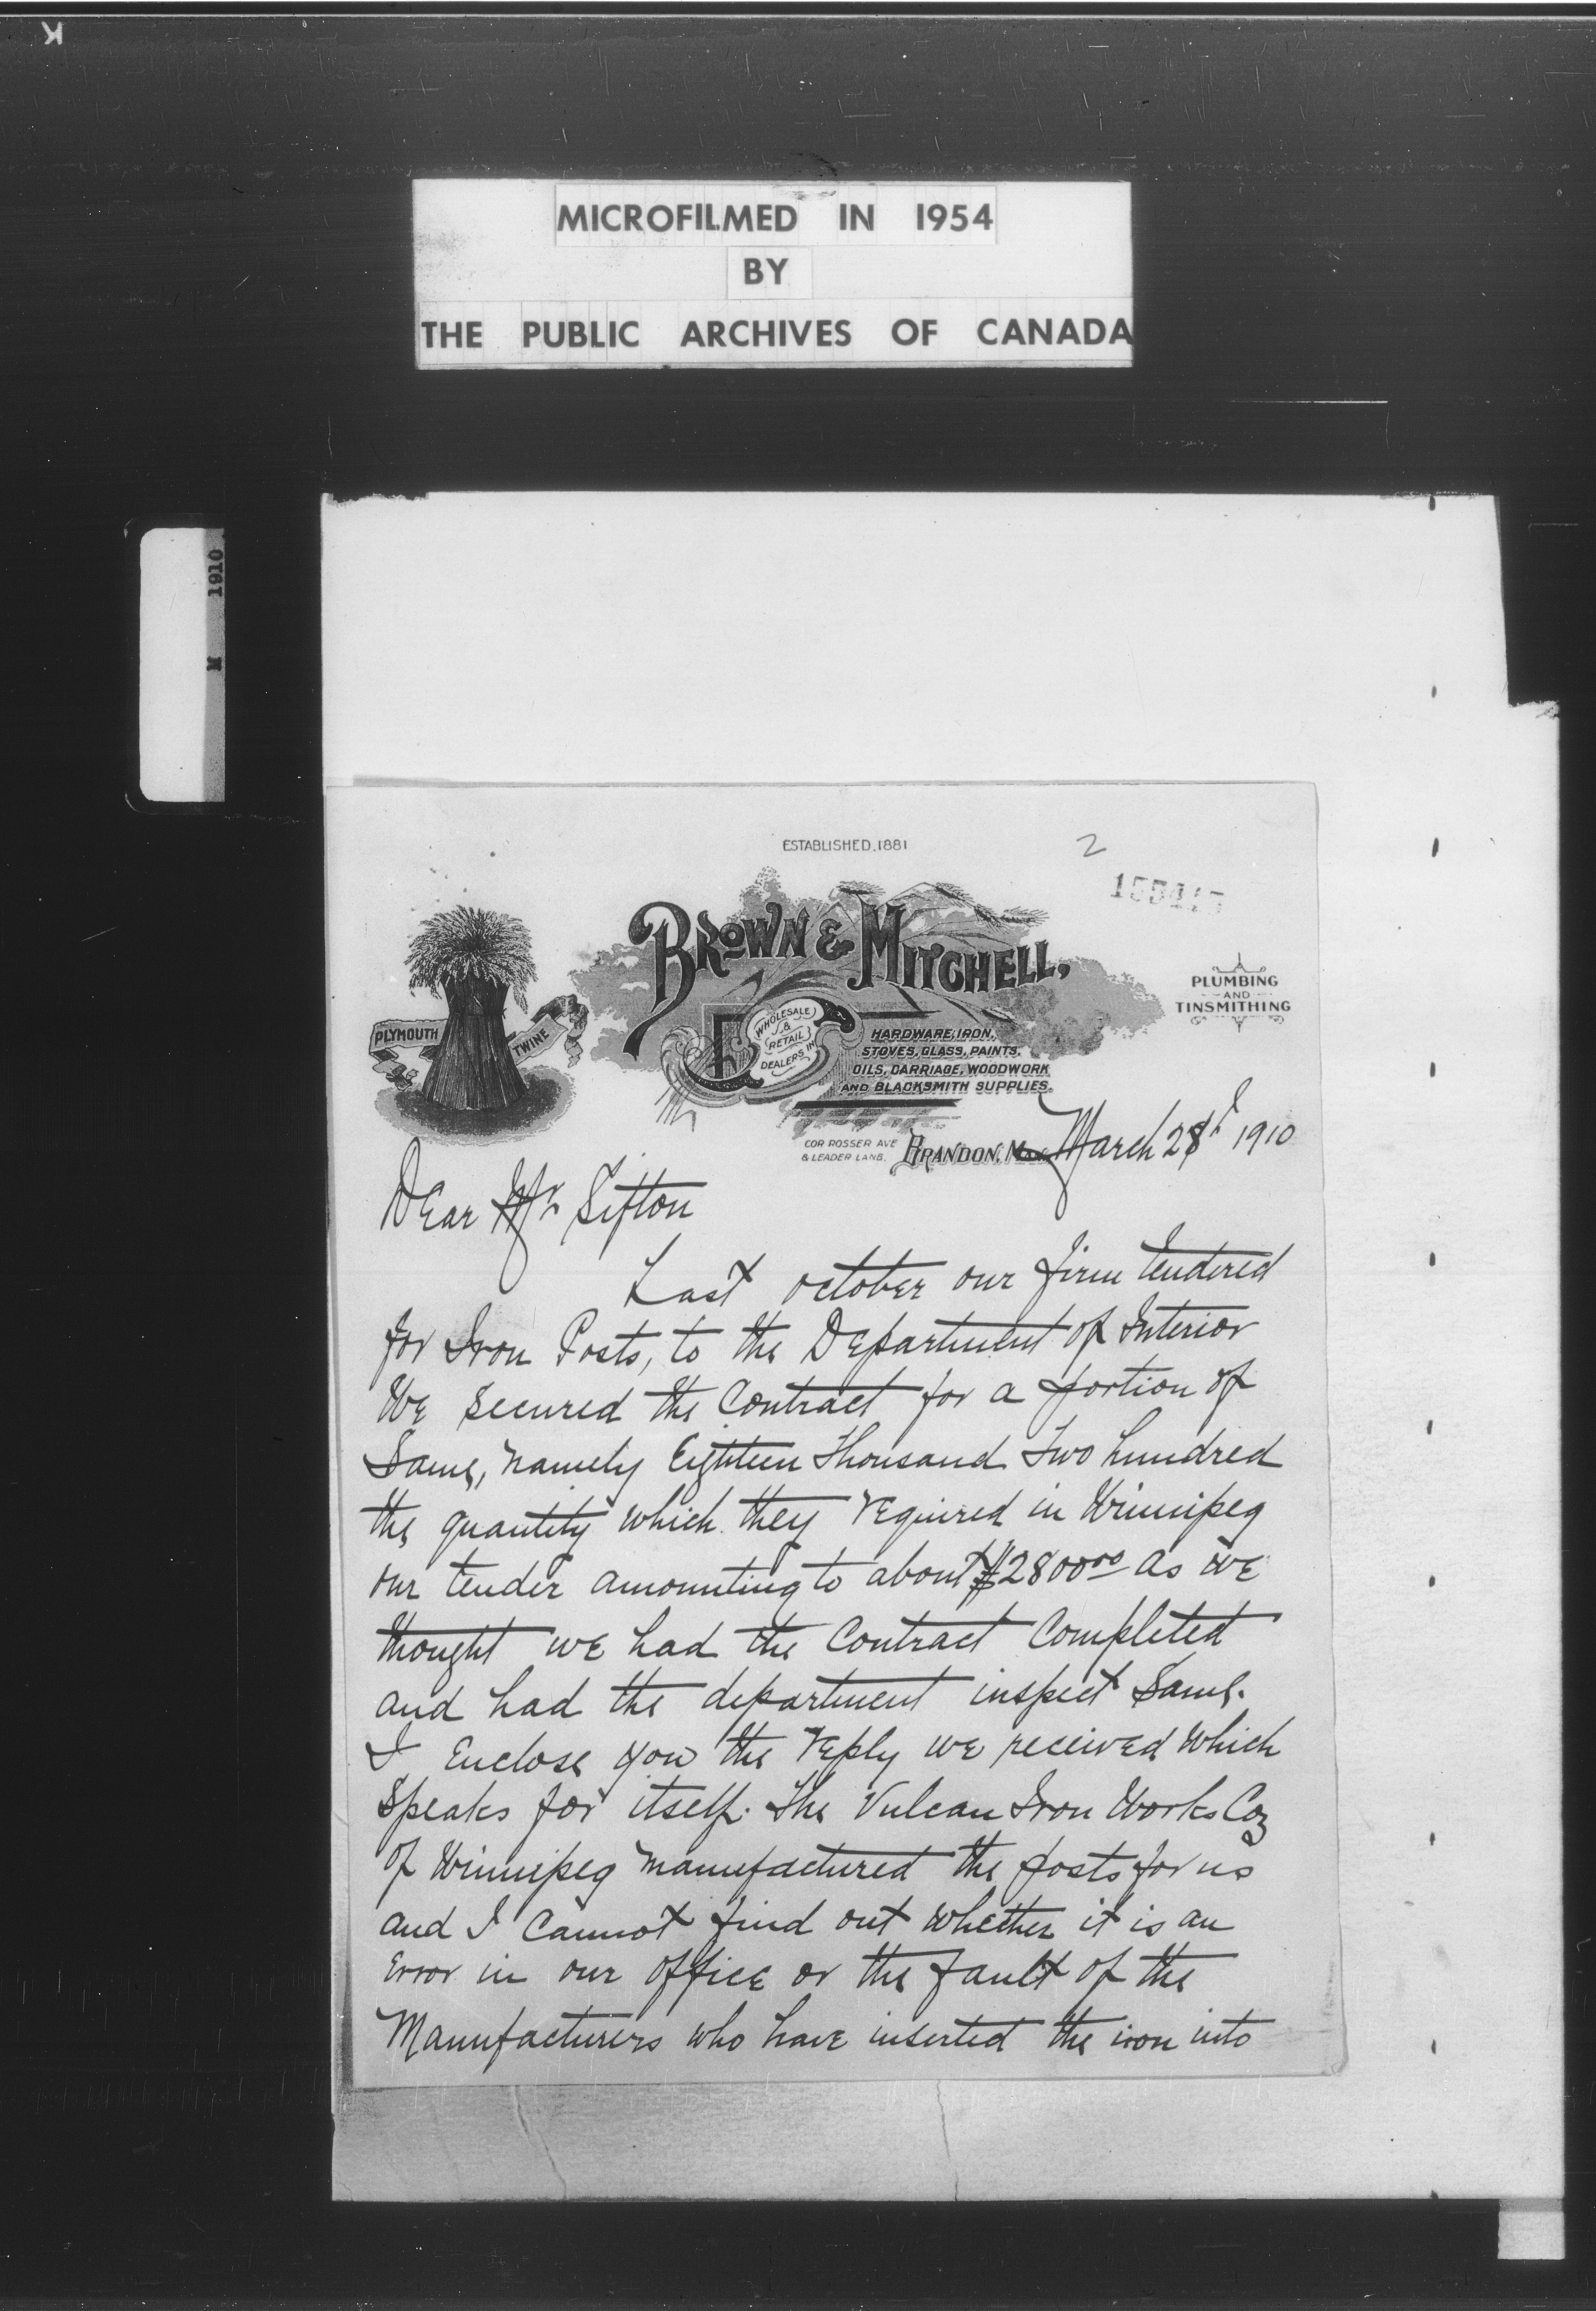 K
MICROFILMED IN 1954
BY
THE PUBLIC ARCHIVES OF CANADA
M 1910
ESTABLISHED.1881
2
BROWN & MITCHELL,
PLYMOUTH TWINE
WHOLESALE
&
RETAIL
DEALERS IN
HARDWARE, IRON,
STOVES, GLASS, PAINTS,
OILS, CARRIAGE, WOODWORK
AND BLACKSMITH SUPPLIES.
PLUMBING
AND
TINSMITHING
COR ROSSER AVE
& LEADER LANE.
BRANDON, March 28th 1910
Dear Mr Sifton
Last october our firm tendered
for Iron Posts, to the Department of Interior
We secured the Contract for a portion of
Same, namely Eighteen Thousand Two hundred
the quantity which they required in Winnipeg
our tender amounting to about $2800.00 as we
thought we had the Contract Completed
and had the department inspect Same.
I Enclose you the reply we received which
Speaks for itself. The Vulcan Iron Works Coy
of Winnipeg manufactured the posts for us
and I Cannot find out whether it is an
Error in our office or the fault of the
Manufacturers who have inserted the iron into